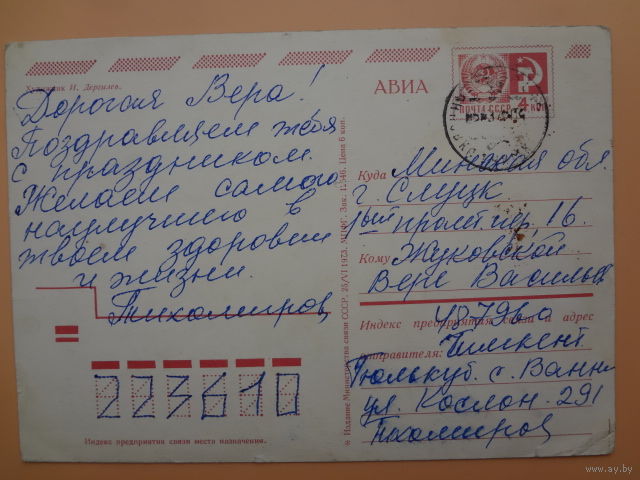 Художник И. Дергилев.
Дорогая Вера!
Поздравляем тебя
с праздником.
Желаем самого
наилучшего в
твоем здоровьи
и жизни.
Тихомиров
223610
Индекс предприятия связи места назначения.
© Издание Министерства связи СССР. 25/VI 1973. Зак. Цена 6 коп.
АВИА
ПОЧТА СССР
4 к
Куда Минская обл.
г. Слуцк
1ый пер. 16.
Кому Жуковской
Вере Василь
Индекс предприятия связи и адрес
отправителя:
Чимкент
Тюлькуб. с. Ванн
ул. 291
Тихомиров
www.ay.by